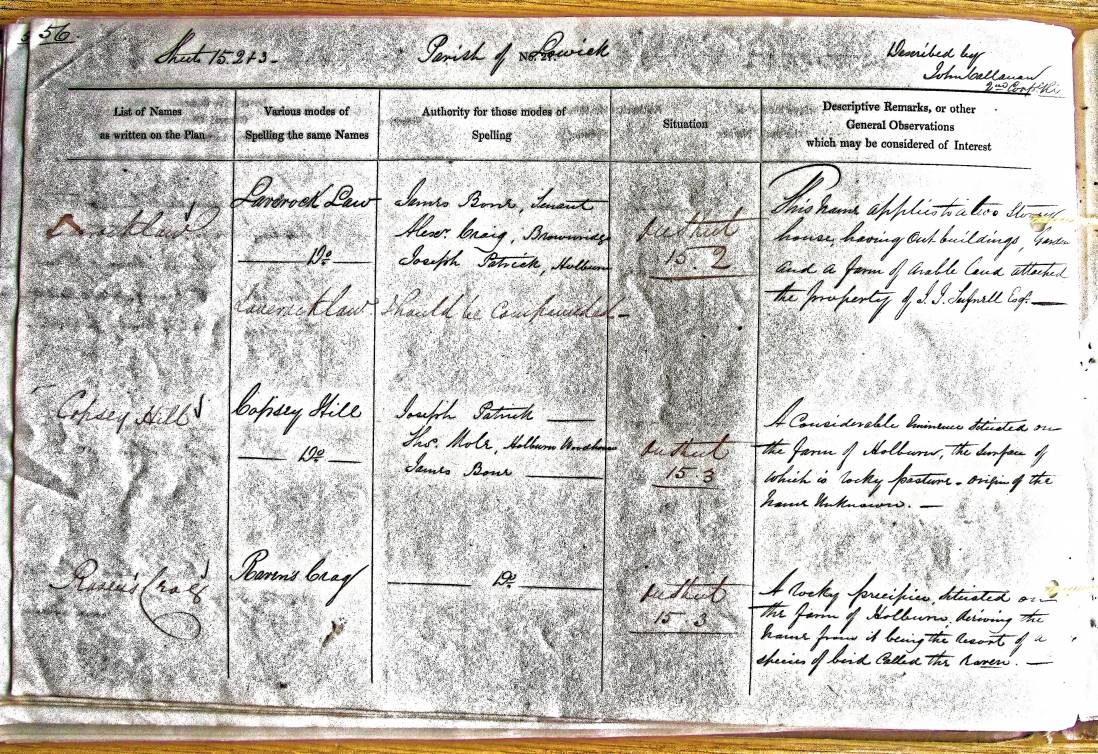 56
Sheet 15. 2 + 3 - Parish of Lowick Described by
John Callanan
2nd Corpl
List of Names
as written on the Plan
Various modes of
Spelling the same Names
Authority for those modes of
Spelling
Situation
Descriptive Remarks, or other
General Observations
which may be considered of Interest
Laverock Law
Do
Laverocklaw
James Bone, Tenant
Alexr. Craig, Brownridge
Joseph Patrick, Holburn
Should be compounded -
15. 2
This name applies to a two Storeyed
house, having Out buildings, Garden
and a farm of arable land attached
the property of Esqr. —
Copsey Hill
Copsey Hill
Do
Joseph Patrick —
Thos. Mole, Holburn Woodhouse
James Bone —
15. 3
A Considerable Eminence situated on
the farm of Holburn, the surface of
which is rocky pasture - origin of the
name Unknown. —
Raven's Crag
Ravens Crag
— Do —
15. 3
A rocky precipice, situated on
the farm of Holburn, deriving the
name from it being the resort of a
species of bird Called the Raven. —